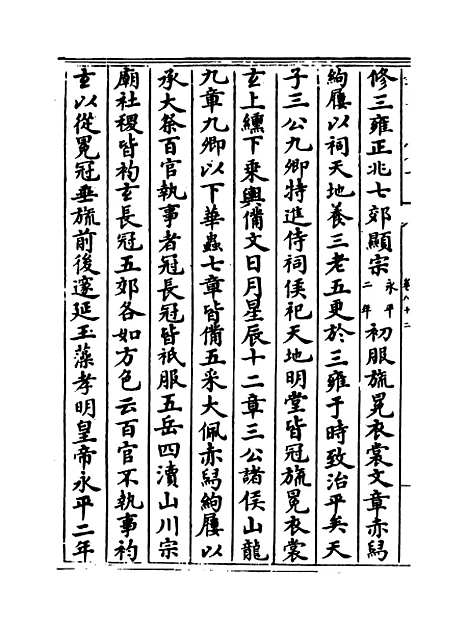 修三雍正兆七郊顯宗永平二年初服旒冕衣裳文章赤舄
絇屨以祠天地養三老五更於三雍于時致治平矣天
子三公九卿特進侍祠侯祀天地明堂皆冠旒冕衣裳
玄上纁下乘輿備文日月星辰十二章三公諸侯山龍
九章九卿以下華蟲七章皆備五采大佩赤舄絇屨以
承大祭百官執事者冠長冠皆祗服五岳四瀆山川宗
廟社稷皆袀玄長冠五郊各如方色云百官不執事袀
玄以從冕冠垂旒前後邃延玉藻孝明皇帝永平二年
卷八十二